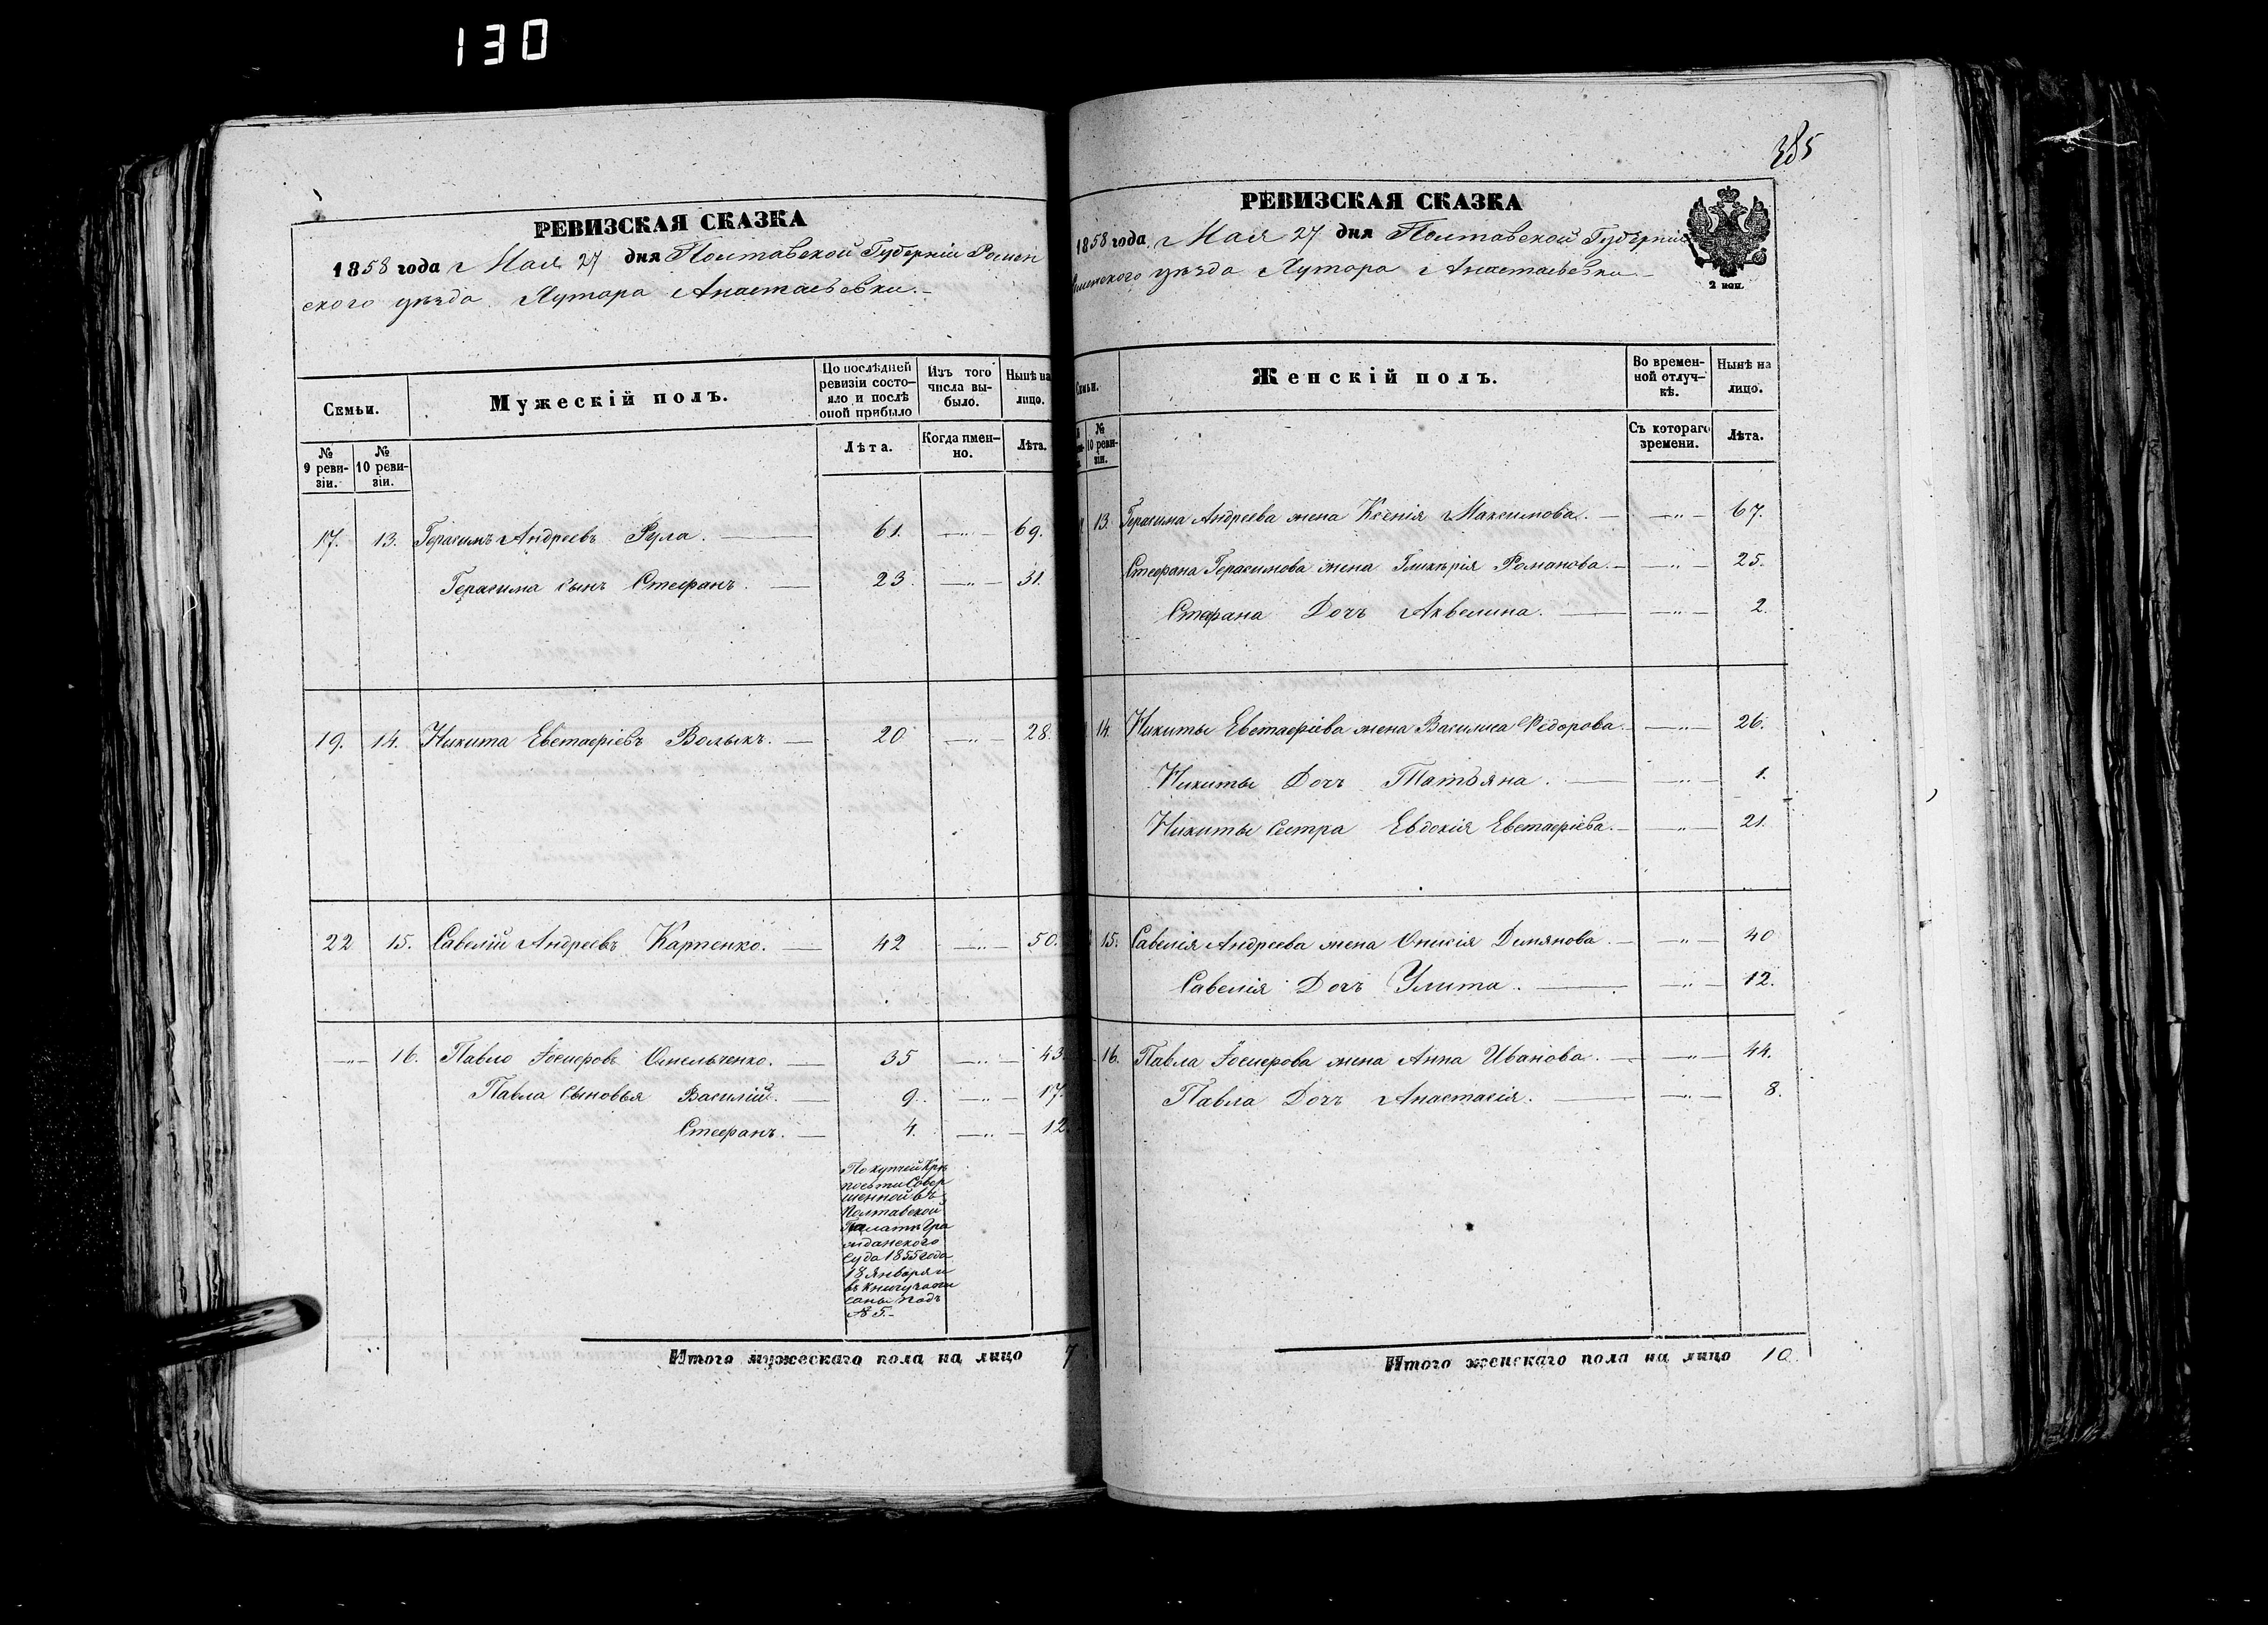 130
РЕВИЗСКАЯ СКАЗКА
1858 года Мая 27 дня Полтавской Губерніи Ромен
ского уѣзда Хутора Анастасьевки.
Семьи.
Мужескій полъ.
По послѣдней ревизіи состояло и послѣ оной прибыло
Изъ того числа выбыло.
Нынѣ на лицо.
№ 9 ревизіи.
№ 10 ревизіи.
Лѣта.
Когда именно.
Лѣта.
17. 13. Герасимъ Андреевъ Рула. 61. —„— 69.
Герасима сынъ Стефанъ. 23. —„— 31.
19. 14. Никита Евстафіевъ Волыкъ. 20. —„— 28.
22 15. Савелій Андреевъ Карпенко. 42 —„— 50.
—„— 16. Павло Іосифовъ Омельченко. 35 —„— 43.
Павла сыновья Василій. 9. —„— 17.
Стефанъ. 4. —„— 12.
По купчей Крѣ
пости Совер
шенной въ
Полтавской
Палатѣ Гра
жданского
Суда 1855 года
18 января и
въ книгу запи
саны подъ
№ 5.
Итого мужескаго пола на лицо 7
385
РЕВИЗСКАЯ СКАЗКА
1858 года Мая 27 дня Полтавской Губерніи
Роменского уѣзда Хутора Анастасьевки
2 коп.
Семьи.
Женскій полъ.
Во временной отлучкѣ.
Нынѣ на лицо.
№ 10 ревизіи.
Съ котораго времени.
Лѣта.
13. Герасима Андреева жена Ксенія Максимова. —„— 67.
Стефана Герасимова жена Гликѣрія Романова. —„— 25.
Стефана Дочь Аквелина. —„— 2.
14. Никиты Евстафіева жена Василиса Федорова. —„— 26.
Никиты Дочь Татьяна. —„— 1.
Никиты Сестра Евдокія Евстафіева. —„— 21.
15. Савелія Андреева жена Онисія Демянова. —„— 40
Савелія Дочь Улита. —„— 12.
16. Павла Іосифова жена Анна Иванова. —„— 44.
Павла Дочь Анастасія. —„— 8.
Итого женскаго пола на лицо 10.